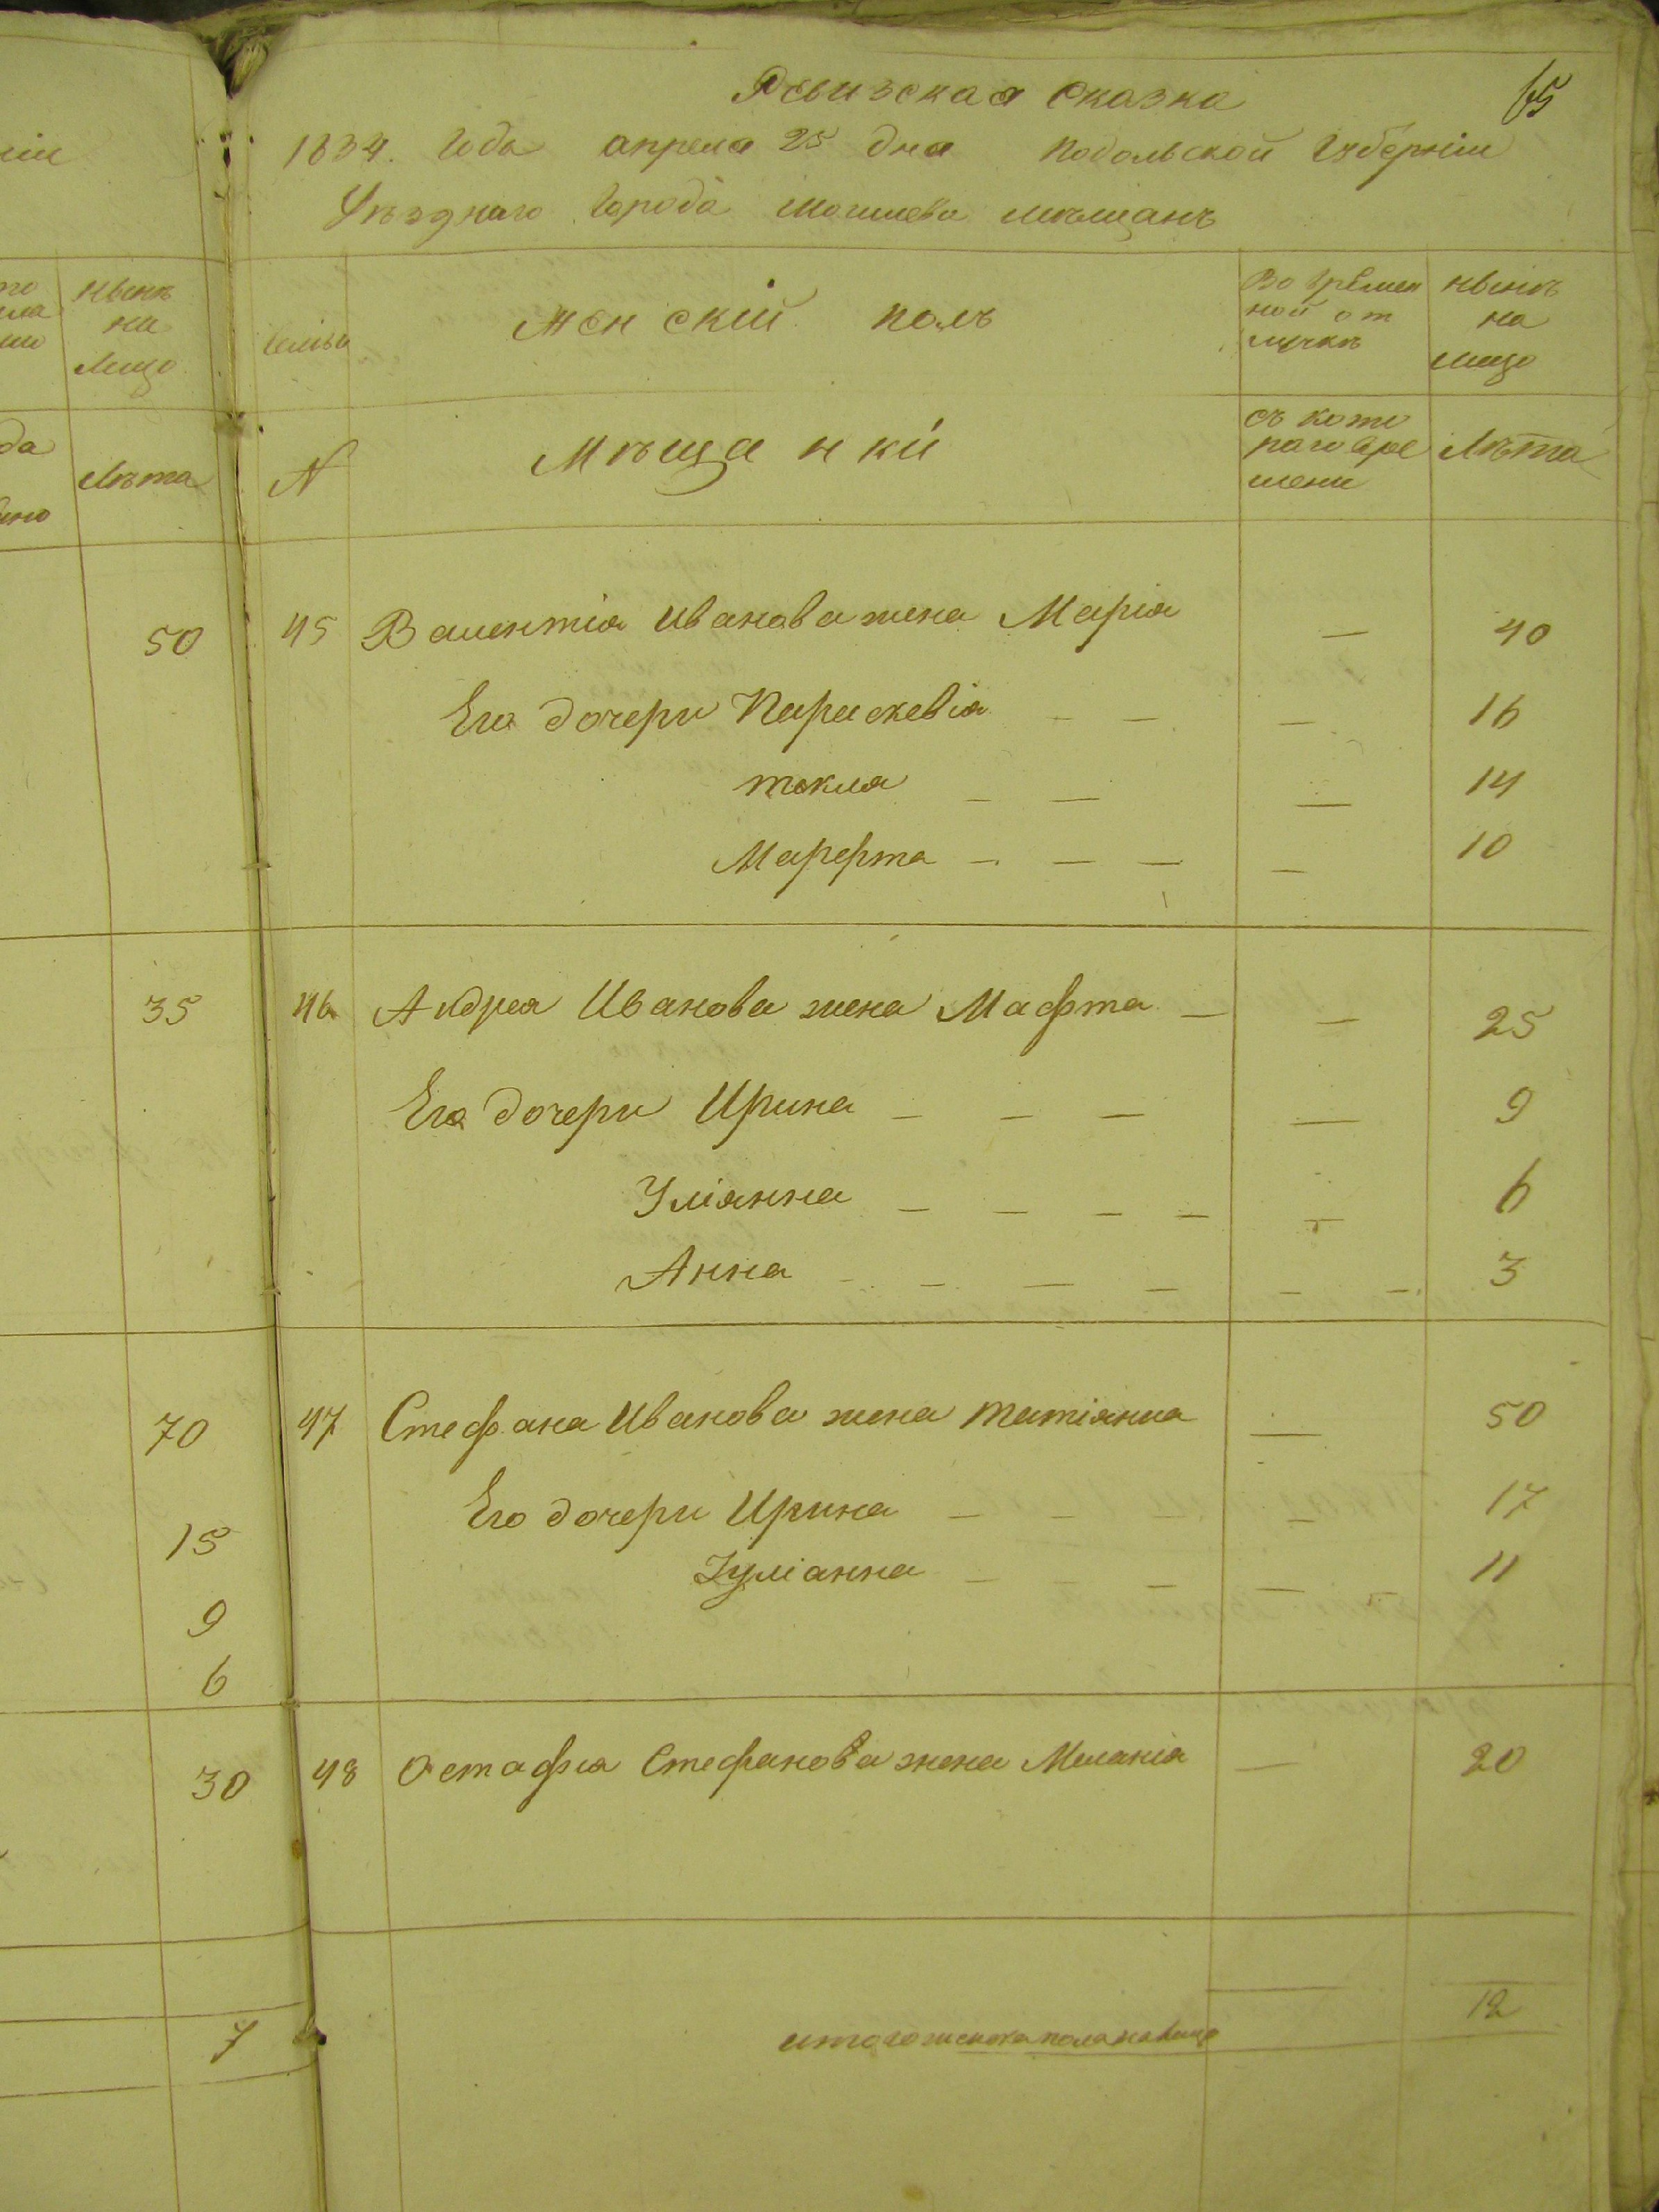 Ревизская Сказка
65
1834. Года апреля 25 дня Подольской Губерніи
Уезднаго Города Могилева мѣщанъ
нынѣ
на
лицо
Лѣта
семьи
Женскій полъ
Во времен
ной от
лучкѣ
нынѣ
на
лицо
N
Мѣщанки
съ кото
раго вре
мени
Лѣта
50
45 Валентія Иванова жена Марія — 40
Его дочери Параскевія — — — 16
Текля — — — 14
Марфта — — — — 10
35
46 Андрея Иванова жена Мафта — — 25
Его дочери Ирина — — — — 9
Уліянна — — — — — 6
Анна — — — — — — 3
70
47 Стефана Иванова жена Татіянна — 50
15
Его дочери Ирина — — — — 17
9
Іуліанна — — — — 11
6
30
48 Остафія Стефанова жена Меланія — 20
7
итого женска пола на лицо 12